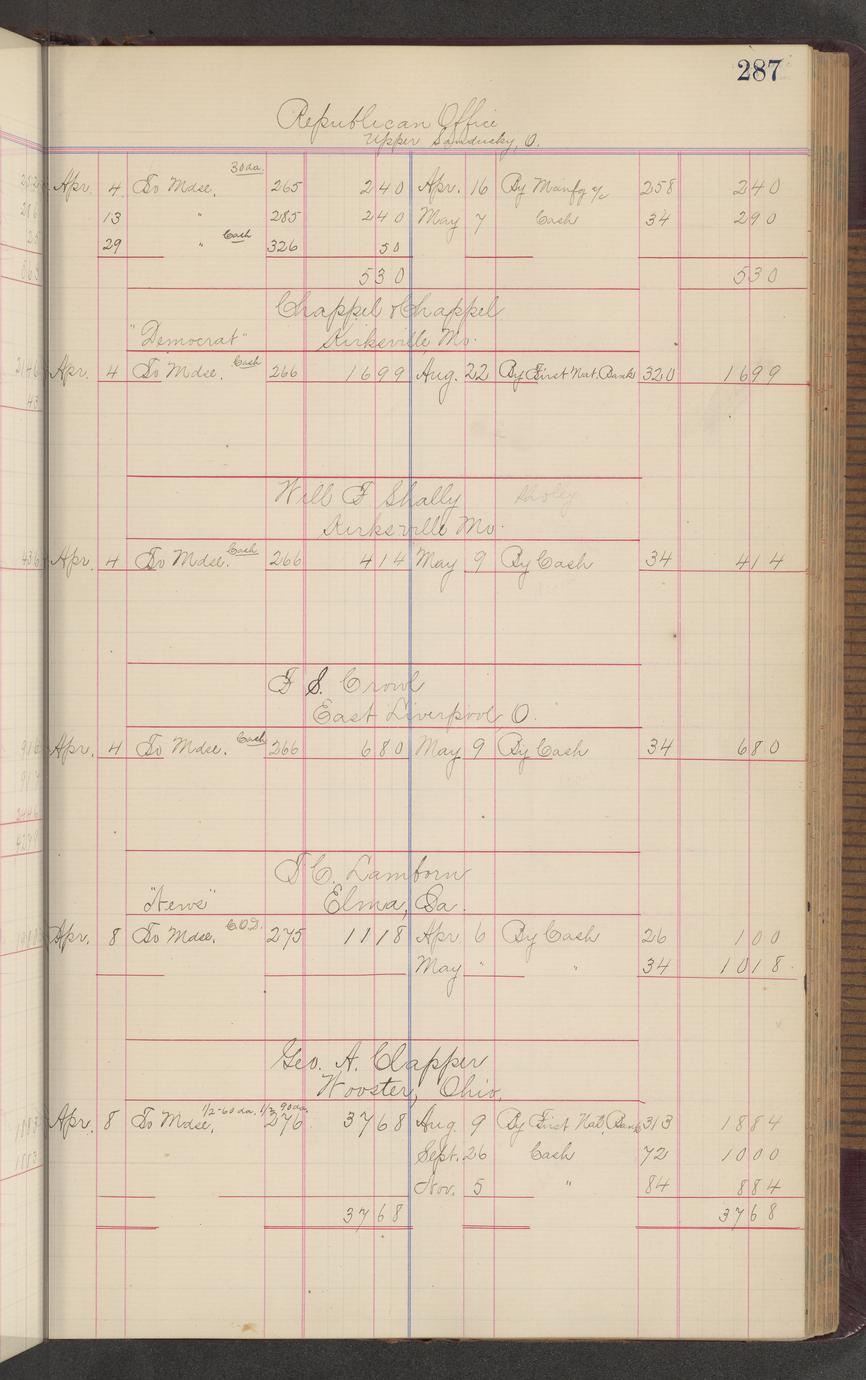 287
Republican Office
Upper Sandusky, O.
Apr. 4 To Mdse. 30 da. 265 2 40 Apr. 16 By Manfg 258 2 40
13 " 285 2 40 May 7 Cash 34 2 90
29 " Cash 326 50
5 30 5 30
Chappel & Chappel
"Democrat" Kirksville Mo.
Apr. 4 To Mdse. Cash 266 16 99 Aug. 22 By First Nat. Bank 320 16 99
Will F Shally
Kirksville Mo.
Apr. 4 To Mdse. Cash 266 4 14 May 9 By Cash 34 4 14
F S. Crowl
East Liverpool, O.
Apr. 4 To Mdse. Cash 266 6 80 May 9 By Cash 34 6 80
T C. Lamborn
"News" Elma, Ia.
Apr. 8 To Mdse. C.O.D. 275 11 18 Apr 6 By Cash 26 1 00
May " " 34 10 18
Geo. A. Clapper
Wooster, Ohio,
Apr. 8 To Mdse, 1/2-60 da. 1/2 90 da. 276 37 68 Aug. 9 By First Nat. Bank 313 18 84
Sept. 26 Cash 72 10 00
Nov. 5 " 84 8 84
37 68 37 68